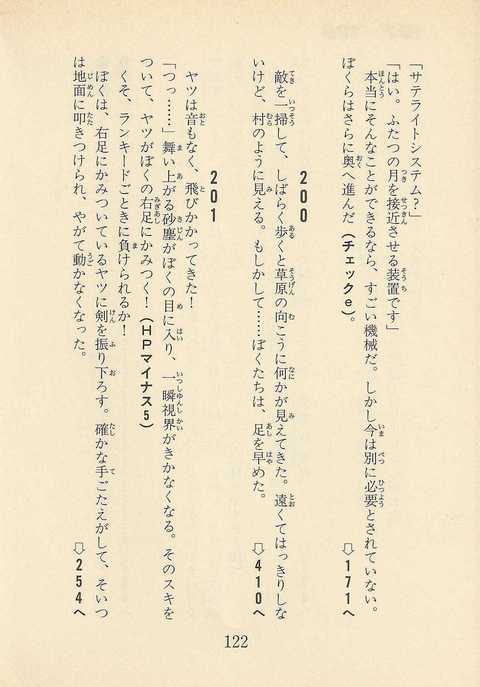 「サテライトシステム？」
「はい。ふたつの月を接近させる装置です」
本当にそんなことができるなら、すごい機械だ。しかし今は別に必要とされていない。
ぼくらはさらに奥へ進んだ（チェックｅ）。
⇩171へ
200
敵を一掃して、しばらく歩くと草原の向こうに何かが見えてきた。遠くてはっきりしな
いけど、村のように見える。もしかして……ぼくたちは、足を早めた。
⇩410へ
201
ヤツは音もなく、飛びかかってきた！
「つっ……」舞い上がる砂塵がぼくの目に入り、一瞬視界がきかなくなる。そのスキを
ついて、ヤツがぼくの右足にかみつく！（ＨＰマイナス5）
くそ、ランキードごときに負けられるか！
ぼくは、右足にかみついているヤツに剣を振り下ろす。確かな手ごたえがして、そいつ
は地面に叩きつけられ、やがて動かなくなった。
⇩254へ
122